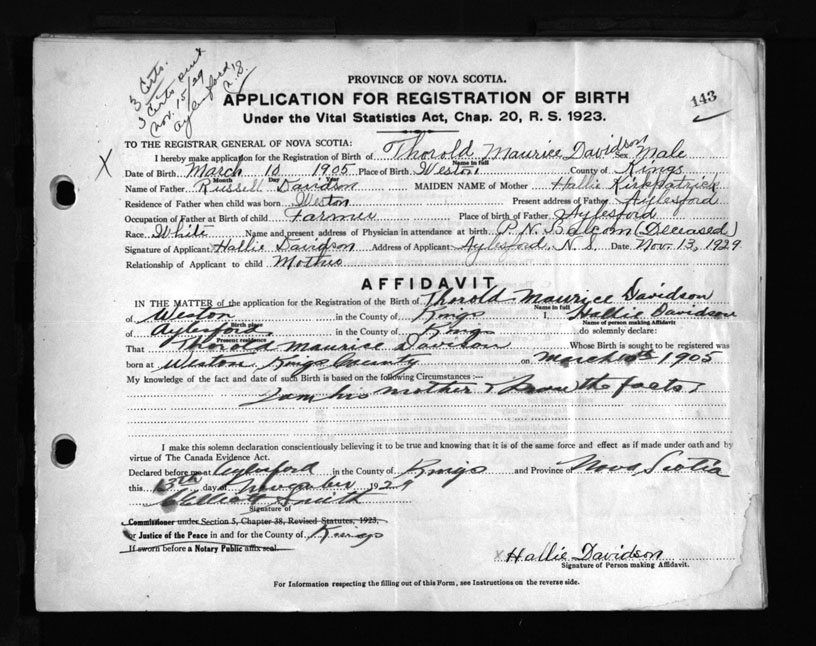 3 Certs.
3 Certs sent
Nov. 15/29
Aylesford, N.S.
143
PROVINCE OF NOVA SCOTIA.
APPLICATION FOR REGISTRATION OF BIRTH
Under the Vital Statistics Act, Chap. 20, R. S. 1923.
TO THE REGISTRAR GENERAL OF NOVA SCOTIA:
X I hereby make application for the Registration of Birth of Thorold Maurice Davidson Sex Male
Name in full
Date of Birth March 10 1905 Place of Birth Weston County of Kings
Month Day Year
Name of Father Russell Davidson MAIDEN NAME of Mother Hallie Kirkpatrick
Residence of Father when child was born Weston Present address of Father Aylesford
Occupation of Father at Birth of child Farmer Place of birth of Father Aylesford
Race White Name and present address of Physician in attendance at birth P. N. Balcom (Deceased)
Signature of Applicant Hallie Davidson Address of Applicant Aylesford, N. S. Date Nov. 13, 1929
Relationship of Applicant to child Mother
AFFIDAVIT
IN THE MATTER of the application for the Registration of the Birth of Thorold Maurice Davidson
Name in full
of Weston in the County of Kings I, Hallie Davidson
Birth place Name of person making Affidavit
of Aylesford in the County of Kings do solemnly declare:
Present residence
That Thorold Maurice Davidson Whose Birth is sought to be registered was
born at Weston Kings County on March 10th 1905
My knowledge of the fact and date of such Birth is based on the following Circumstances :—
I am his mother & know the facts
I make this solemn declaration conscientiously believing it to be true and knowing that it is of the same force and effect as if made under oath and by
virtue of The Canada Evidence Act.
Declared before me at Aylesford in the County of Kings and Province of Nova Scotia
this 13th day of November 1929
Smith
Signature of
Commissioner under Section 5, Chapter 38, Revised Statutes, 1923,
or Justice of the Peace in and for the County of Kings
If sworn before a Notary Public affix seal.
x Hallie Davidson
Signature of Person making Affidavit.
For Information respecting the filling out of this Form, see Instructions on the reverse side.